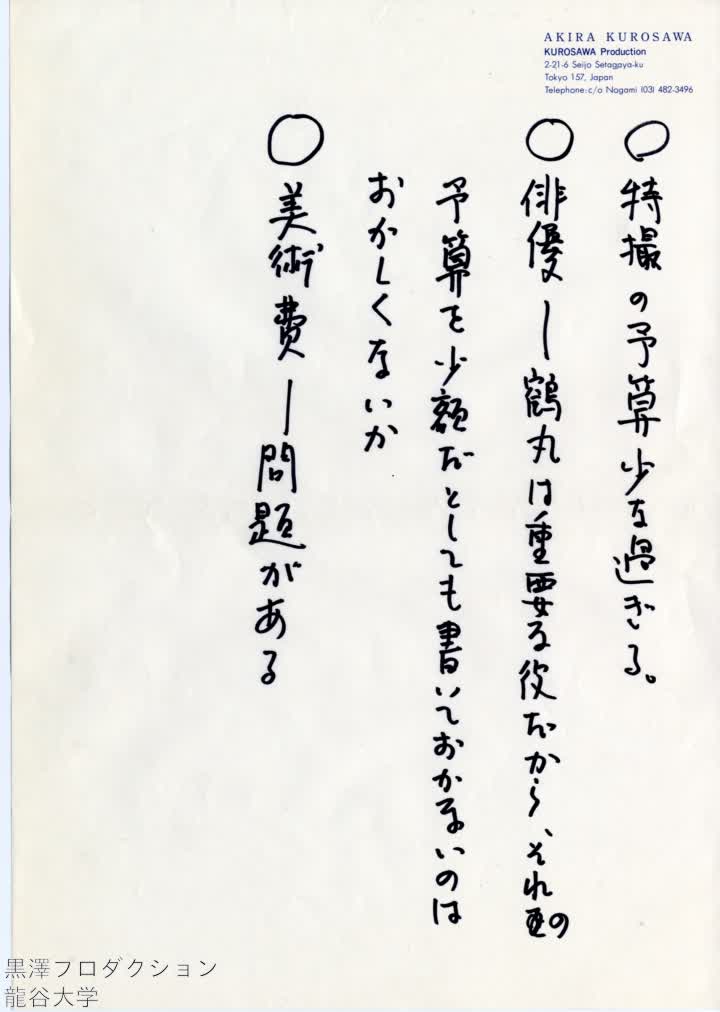 AKIRA KUROSAWA
KUROSAWA Production
2-21-6 Seijo Setagaya-ku
Tokyo 157, Japan
Telephone: c/o Nogami (03) 482-3496
○特撮の予算少な過ぎる。
○俳優ー鶴丸は重要な役だから、それの
予算を少額だとしても書いておかないのは
おかしくないか
○美術費ー問題がある
黒澤プロダクション
龍谷大学